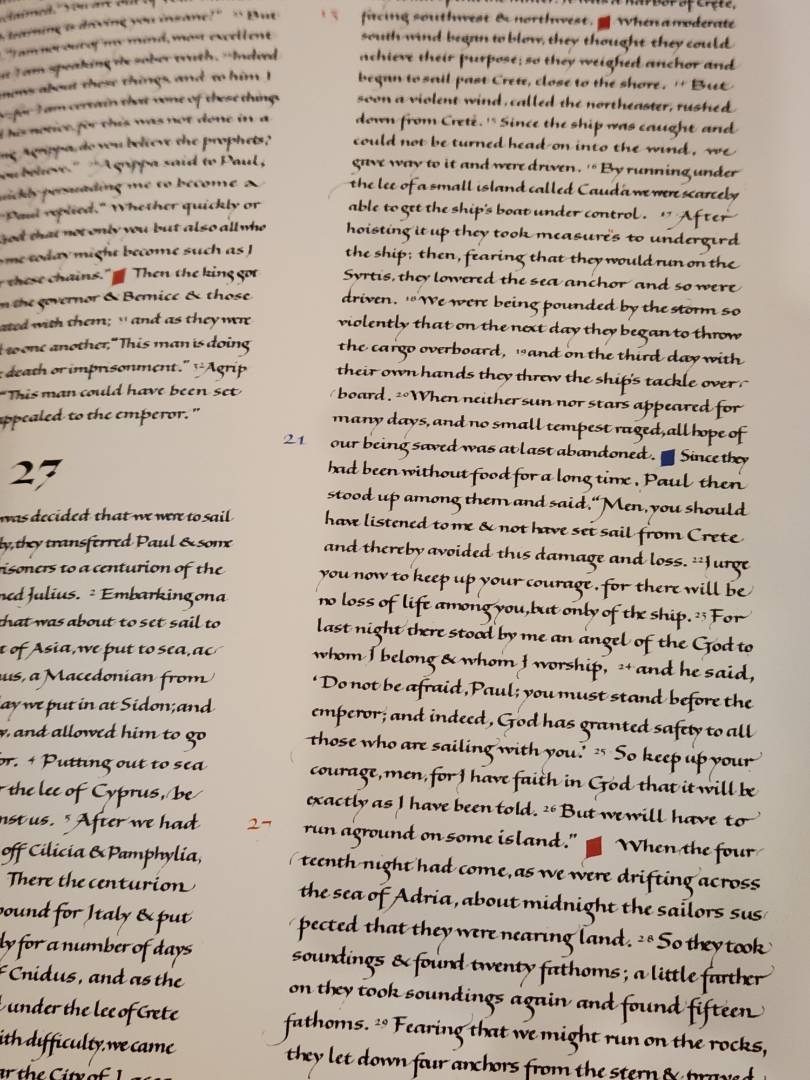 learning is driving you insane!" 25 But
"I am not out of my mind, most excellent
I am speaking the sober truth. 26 Indeed
knows about these things, and to him I
for I am certain that none of these things
his notice, for this was not done in a
Agrippa, do you believe the prophets?
you believe." 28 Agrippa said to Paul,
quickly persuading me to become a
Paul replied, "Whether quickly or
God that not only you but also all who
me today might become such as I
these chains." Then the king got
the governor & Bernice & those
ated with them; 31 and as they were
to one another, "This man is doing
death or imprisonment." 32 Agrip
"This man could have been set
appealed to the emperor."
27
was decided that we were to sail
ly, they transferred Paul & some
risoners to a centurion of the
ned Julius. 2 Embarking on a
that was about to set sail to
of Asia, we put to sea, ac
us, a Macedonian from
ay we put in at Sidon; and
y, and allowed him to go
or. 4 Putting out to sea
the lee of Cyprus, be
nst us. 5 After we had
off Cilicia & Pamphylia,
There the centurion
bound for Italy & put
ly for a number of days
Cnidus, and as the
under the lee of Crete
ith difficulty, we came
the City of
harbor of Crete,
13 facing southwest & northwest. When a moderate
south wind began to blow, they thought they could
achieve their purpose; so they weighed anchor and
began to sail past Crete, close to the shore. 14 But
soon a violent wind, called the northeaster, rushed
down from Crete. 15 Since the ship was caught and
could not be turned head-on into the wind, we
gave way to it and were driven. 16 By running under
the lee of a small island called Cauda we were scarcely
able to get the ship's boat under control. 17 After
hoisting it up they took measures to undergird
the ship; then, fearing that they would run on the
Syrtis, they lowered the sea anchor and so were
driven. 18 We were being pounded by the storm so
violently that on the next day they began to throw
the cargo overboard, 19 and on the third day with
their own hands they threw the ship's tackle over
board. 20 When neither sun nor stars appeared for
many days, and no small tempest raged, all hope of
21 our being saved was at last abandoned. Since they
had been without food for a long time, Paul then
stood up among them and said, "Men, you should
have listened to me & not have set sail from Crete
and thereby avoided this damage and loss. 22 I urge
you now to keep up your courage, for there will be
no loss of life among you, but only of the ship. 23 For
last night there stood by me an angel of the God to
whom I belong & whom I worship, 24 and he said,
'Do not be afraid, Paul; you must stand before the
emperor; and indeed, God has granted safety to all
those who are sailing with you.' 25 So keep up your
courage, men, for I have faith in God that it will be
exactly as I have been told. 26 But we will have to
27 run aground on some island." When the four
teenth night had come, as we were drifting across
the sea of Adria, about midnight the sailors sus
pected that they were nearing land. 28 So they took
soundings & found twenty fathoms; a little farther
on they took soundings again and found fifteen
fathoms. 29 Fearing that we might run on the rocks,
they let down four anchors from the stern & prayed